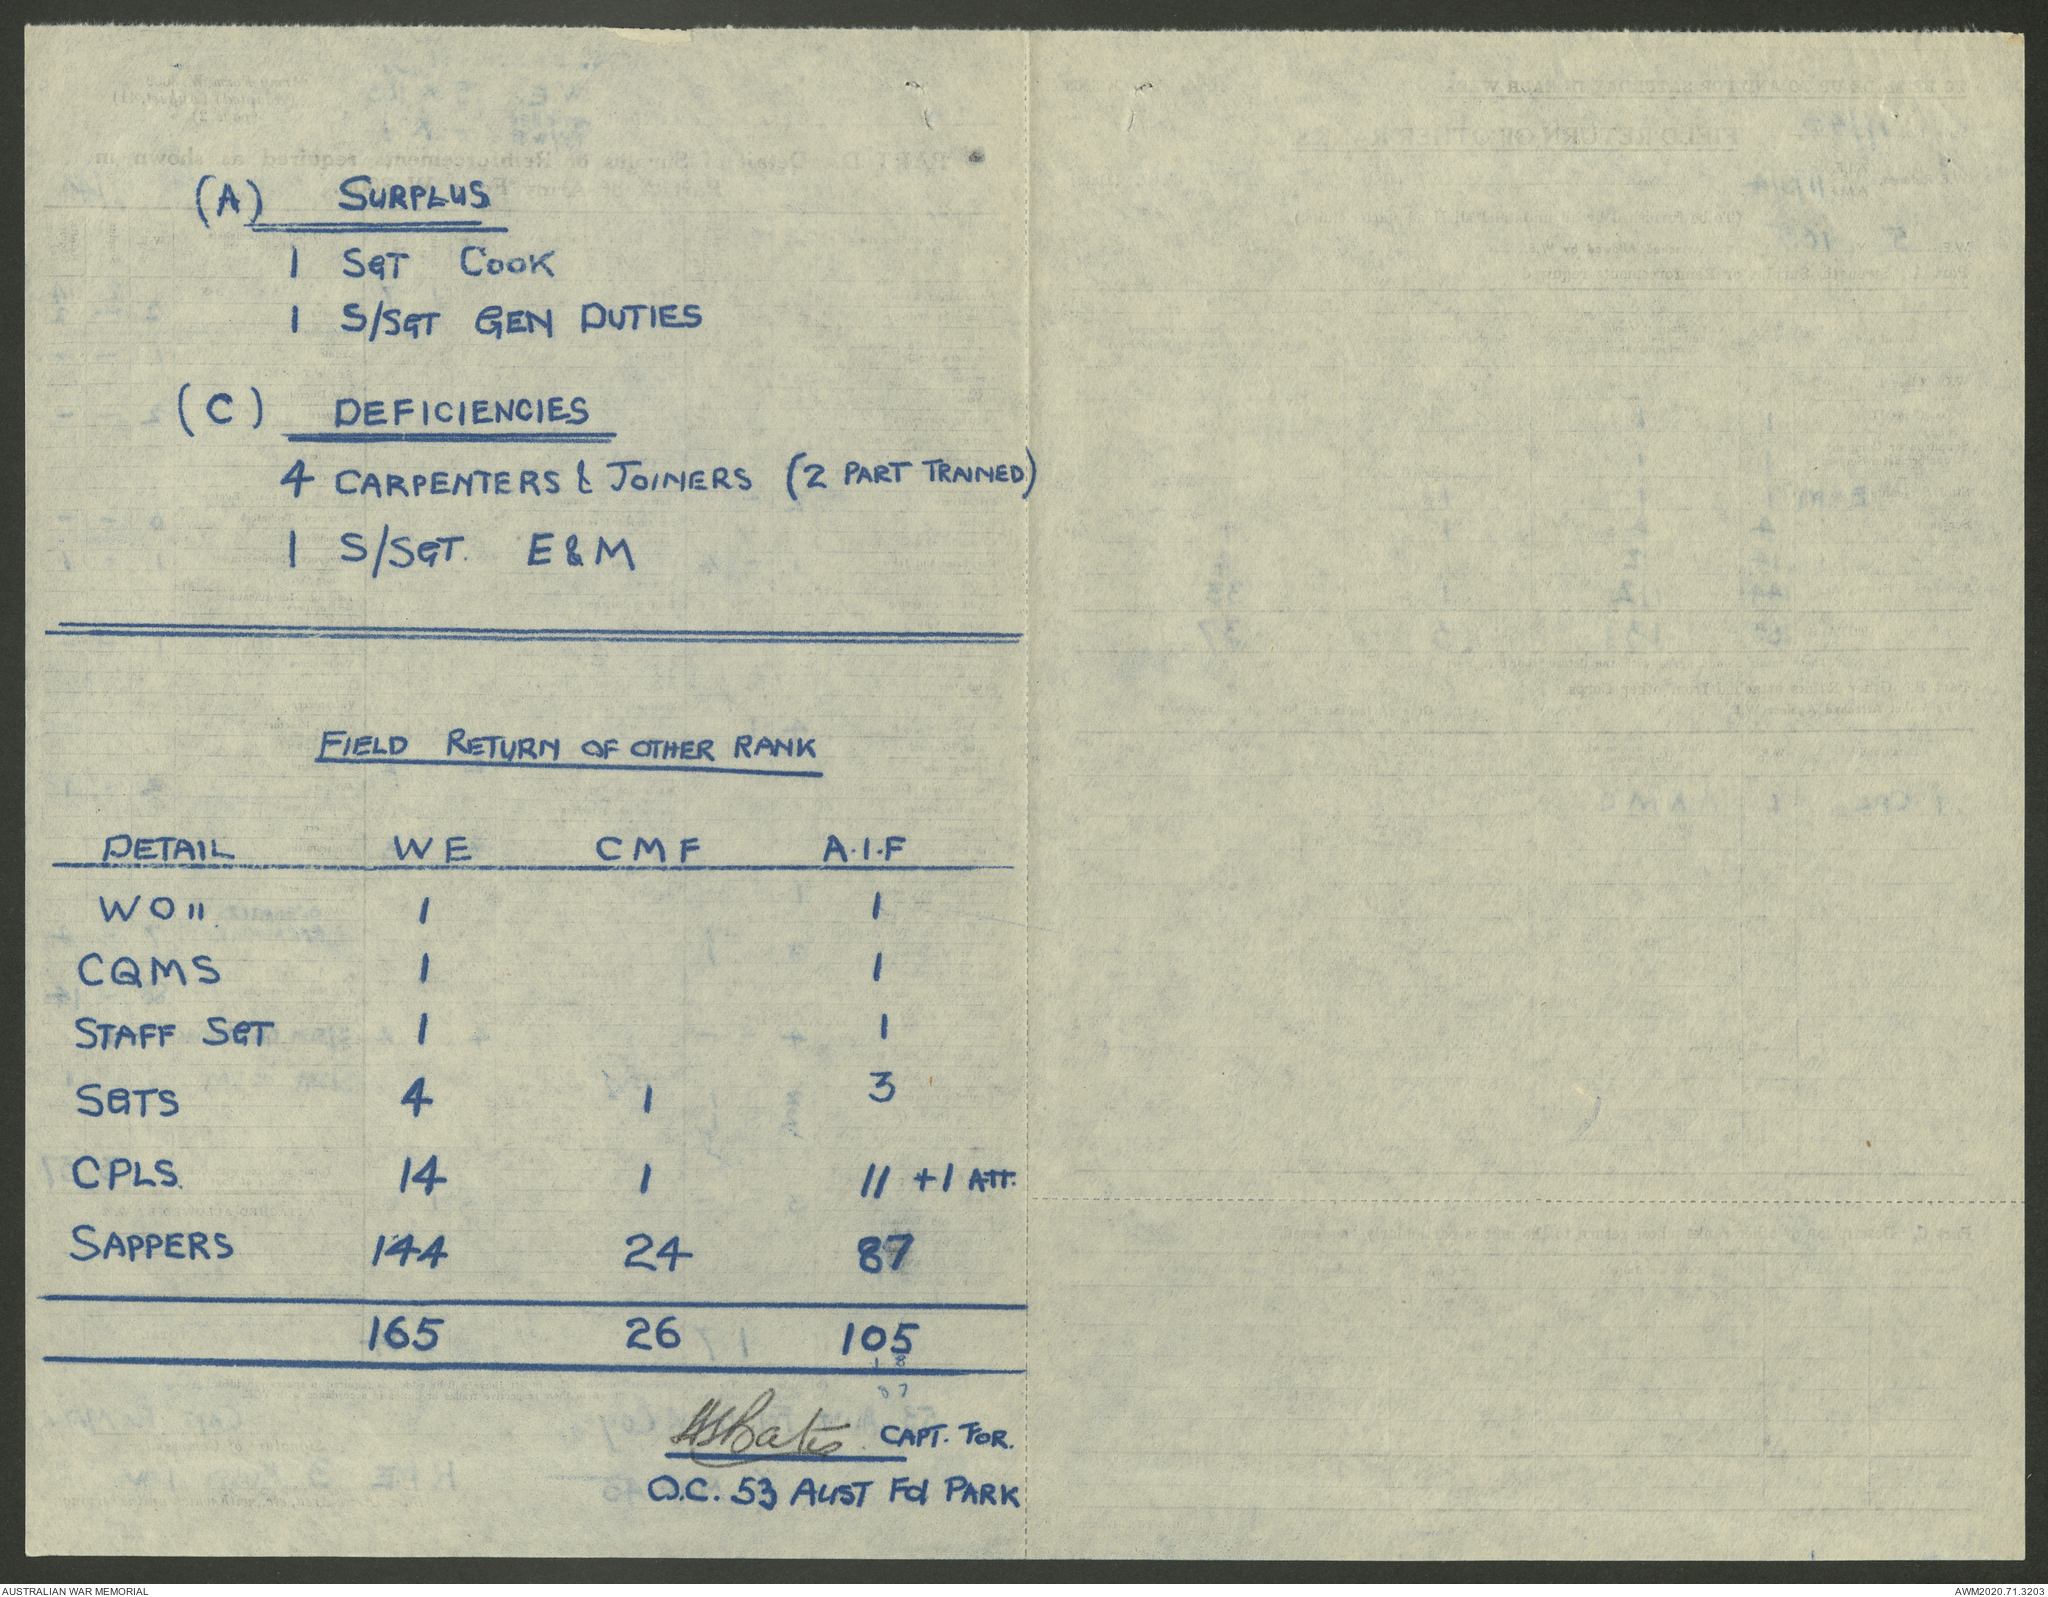 (A) SURPLUS
1 SGT COOK
1 S/SGT GEN DUTIES
(C) DEFICIENCIES
4 CARPENTERS & JOINERS (2 PART TRAINED)
1 S/SGT. E & M
FIELD RETURN OF OTHER RANK
DETAIL WE CMF A.I.F
WO II 1 1
CQMS 1 1
STAFF SGT 1 1
SGTS 4 1 3
CPLS. 14 1 11 +1 ATT.
SAPPERS 144 24 87
165 26 105
1 8
87
CAPT. FOR.
O.C. 53 AUST Fd PARK
AUSTRALIAN WAR MEMORIAL
AWM2020.71.3203